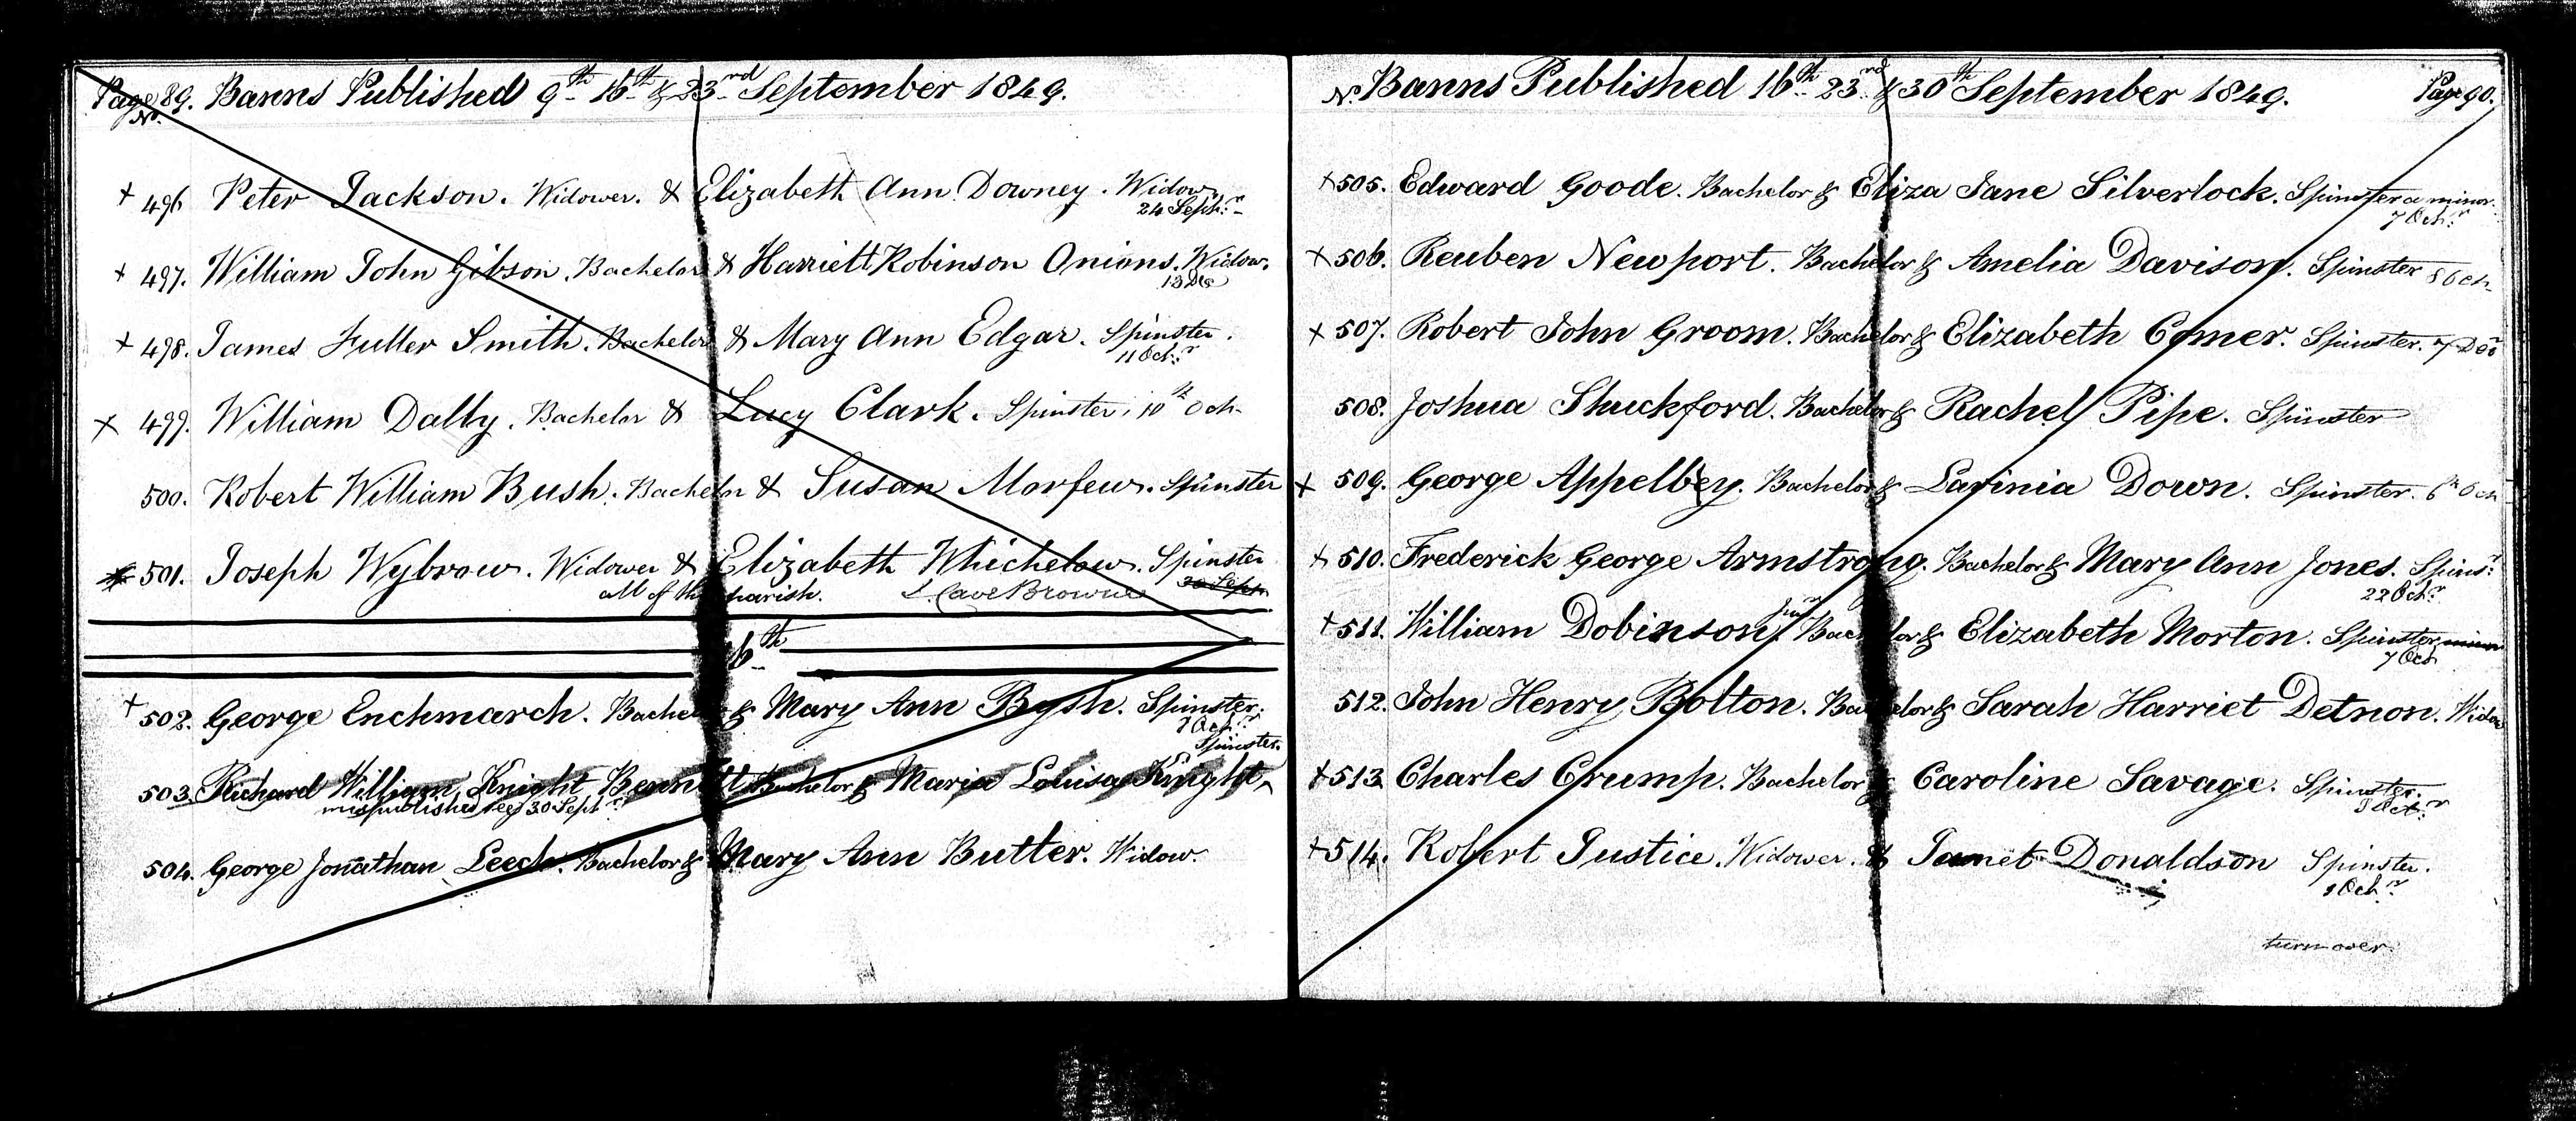 Page 89. Banns Published 9th 16th & 23rd September 1849.
No.
+ 496 Peter Jackson. Widower. & Elizabeth Ann Downey. Widow.
24 Septr.
+ 497. William John Gibson. Bachelor & Harriett Robinson Onions. Widow.
+ 498. James Fuller Smith. Bachelor & Mary Ann Edgar. Spinster.
11 Octr.
x 499. William Dalby. Bachelor & Lucy Clark. Spinster. 10th Oct.
500. Robert William Bush. Bachelor & Susan Morfew. Spinster
501. Joseph Wybrow. Widower & Elizabeth Whichelow. Spinster
all of this parish. Cave Browne 30 Sept
16th
+ 502. George Enchmarch. Bachelor & Mary Ann Bysh. Spinster.
7 Octr.
Spinster.
503. Richard William Knight Bennett Bachelor & Maria Louisa Knight ^
mispublished see 30 Septr.
504. George Jonathan Leech. Bachelor & Mary Ann Butler. Widow.
No. Banns Published 16th 23rd & 30th September 1849. Page 90.
+ 505. Edward Goode. Bachelor & Eliza Jane Silverlock. Spinster a minor.
7 Octr.
+ 506. Reuben Newport. Bachelor & Amelia Davison. Spinster 8 Oct.
+ 507. Robert John Groom. Bachelor & Elizabeth Comer. Spinster. 7
508. Joshua Shuckford. Bachelor & Rachel Pipe. Spinster
+ 509. George Appelbey. Bachelor & Lavinia Down. Spinster. 6th Oct
+ 510. Frederick George Armstrong. Bachelor & Mary Ann Jones. Spinsr.
22 Octr.
+ 511. William Dobinson Junr. Bachelor & Elizabeth Morton. Spinster minor
7 Oct
512. John Henry Bolton. Bachelor & Sarah Harriet Detnon. Widow
+ 513. Charles Crump. Bachelor & Caroline Savage. Spinster.
9 Octr.
+ 514. Robert Justice. Widower. & Janet Donaldson Spinster.
9 Octr.
turn over.